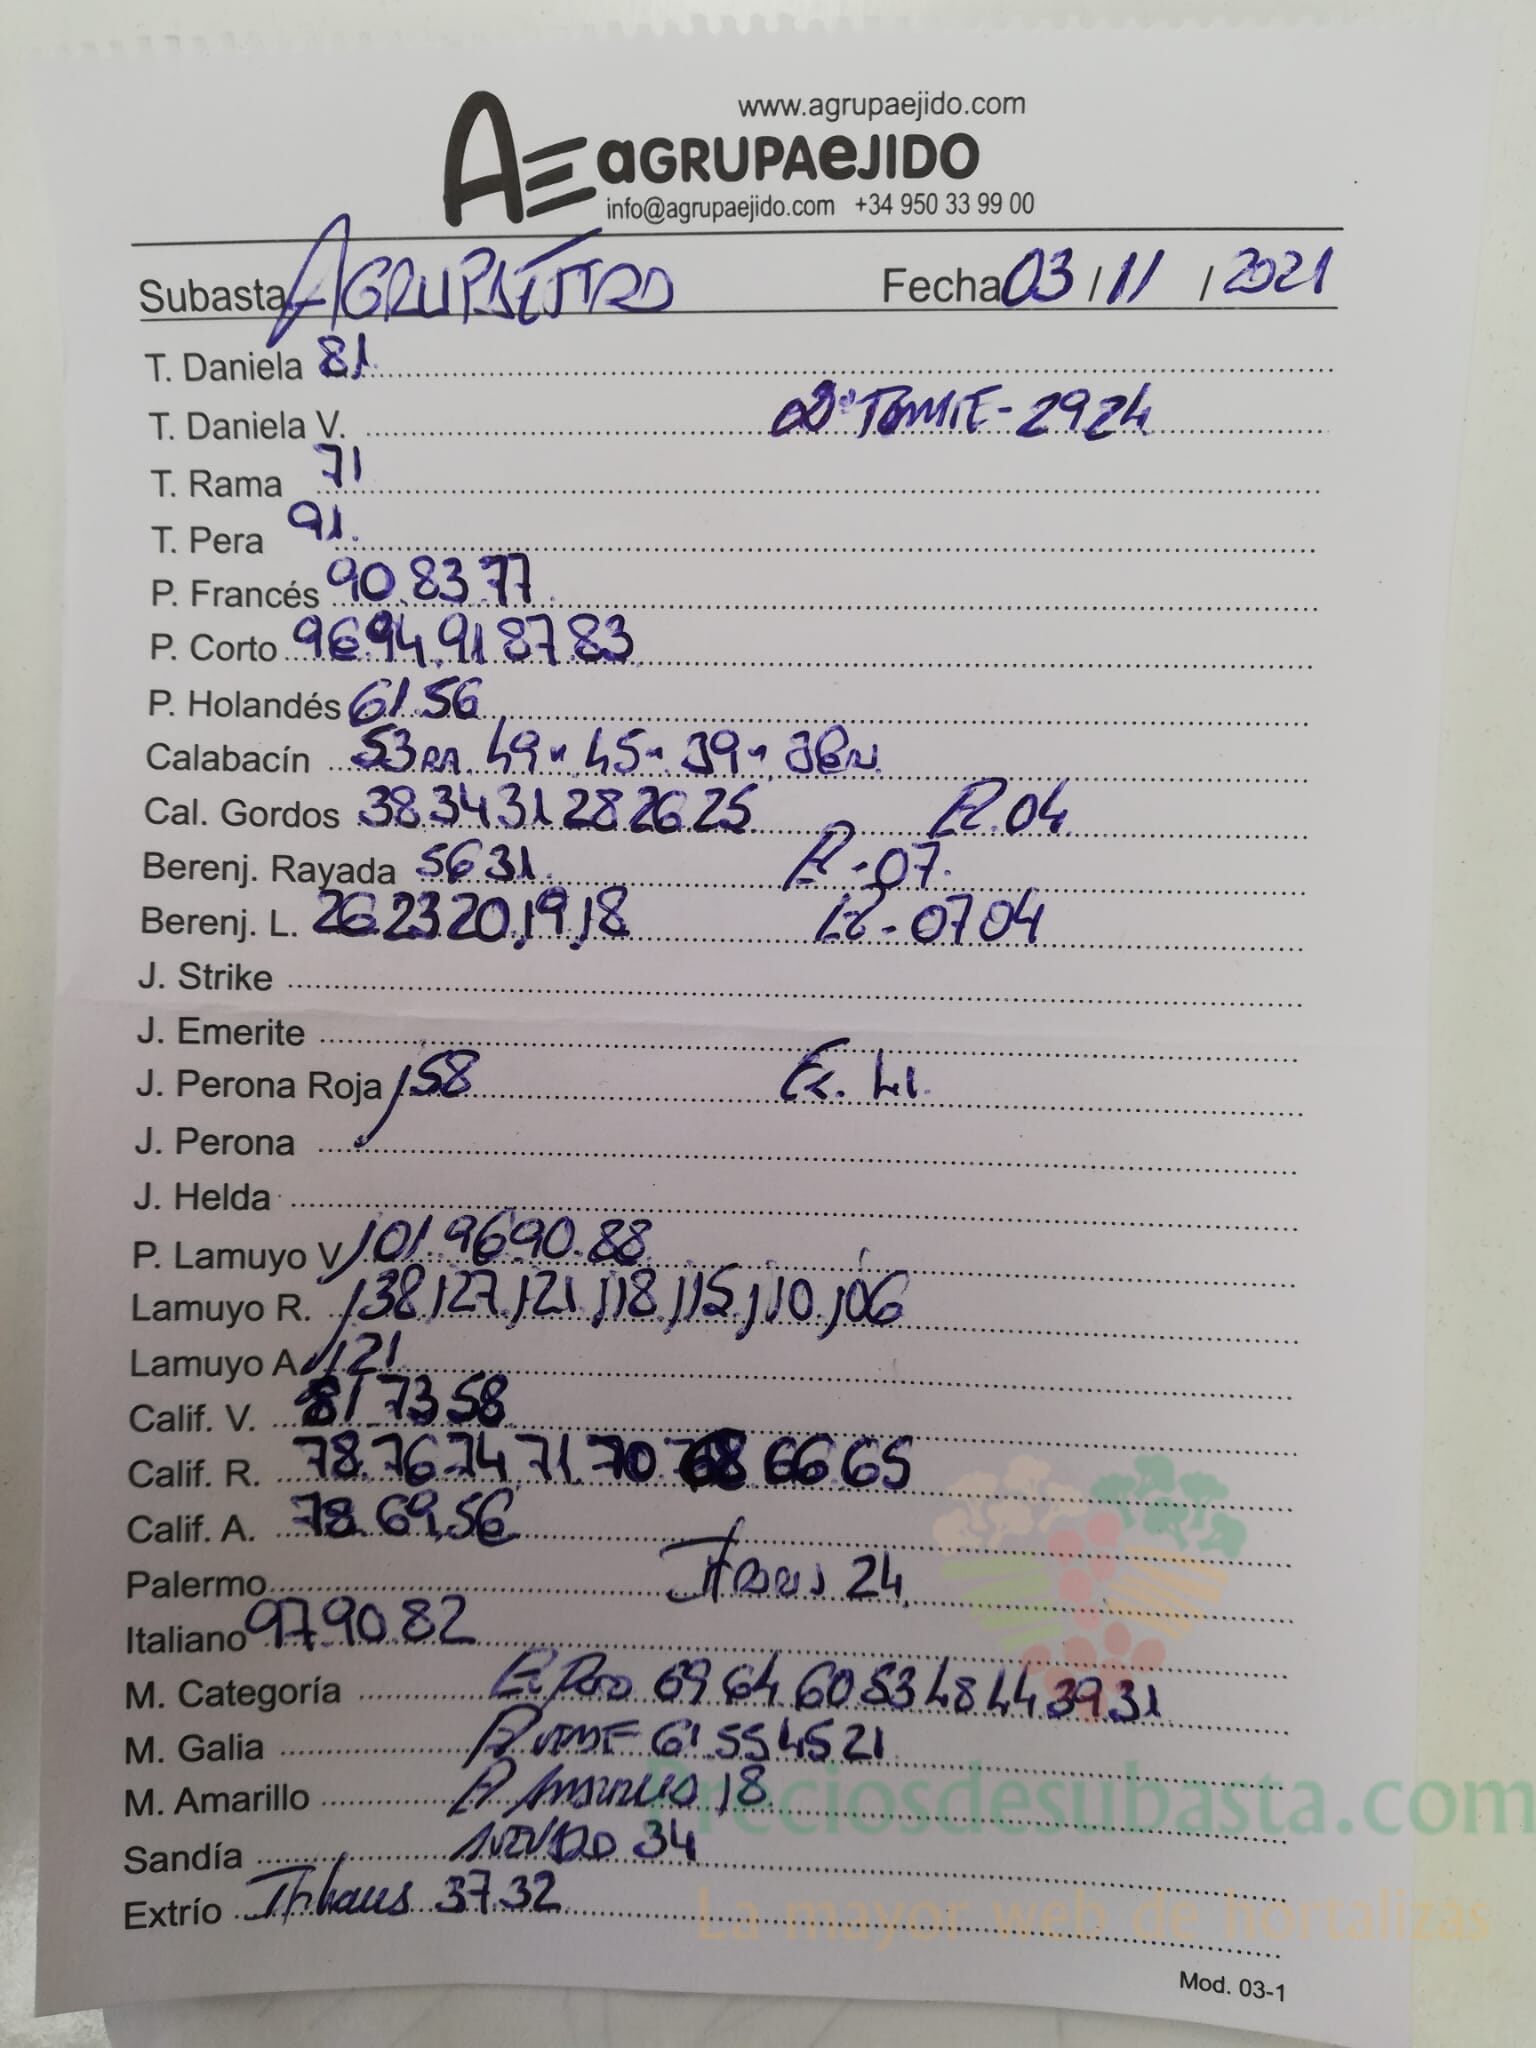 www.agrupaejido.com
AE aGRUPAeJIDO
info@agrupaejido.com +34 950 33 99 00
Subasta AGRUPAEJIDO Fecha 03 / 11 / 2021
T. Daniela 81
T. Daniela V. 29 24
T. Rama 71
T. Pera 91
P. Francés 90 83 77
P. Corto 96 94 91 87 83
P. Holandés 61 56
Calabacín 53 49 45 39
Cal. Gordos 38 34 31 28 26 25 R. 04
Berenj. Rayada 56 31 R - 07
Berenj. L. 26 23 20, 19, 18 - 07 04
J. Strike
J. Emerite
J. Perona Roja 158 41
J. Perona
J. Helda
P. Lamuyo V 101 96 90 88
Lamuyo R. 138 127 121 118 115 110 106
Lamuyo A 121
Calif. V. 81 73 58
Calif. R. 78 76 74 71 70 68 66 65
Calif. A. 78 69 56
Palermo 24
Italiano 97 90 82
M. Categoría 69 64 60 53 48 44 39 31
M. Galia 61 55 45 21
M. Amarillo 18
Sandía 34
Extrío 37 32
Preciosdesubasta.com
La mayor web de hortalizas
Mod. 03-1